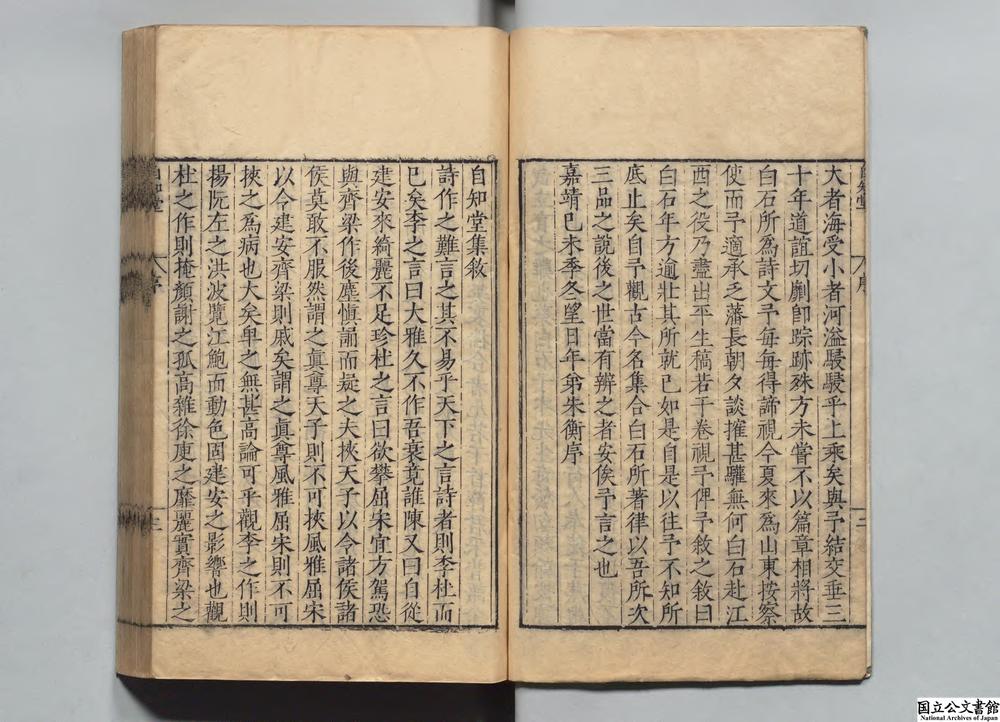 大者海受小者河溢駸駸乎上乘矣與予結交垂三
十年道誼切劘卽踪跡殊方未嘗不以篇章相將故
白石所爲詩文予每每得諦視今夏來爲山東按察
使而予適承乏藩長朝夕談摧甚驩無何白石赴江
西之役乃盡出平生稿若干卷視予俾予敘之敘曰
白石年方逾壯其所就已如是自是以往予不知所
底止矣自予觀古今名集合白石所著律以吾所次
三品之說後之世當有辨之者安俟予言之也
嘉靖己未季冬望日年弟朱衡序
自知堂集敘
詩作之難言之其不易乎天下之言詩者則李杜而
已矣李之言曰大雅久不作吾衰竟誰陳又曰自從
建安來綺麗不足珍杜之言曰欲攀屈宋宜方駕恐
與齊梁作後塵愼誦而疑之夫挾天子以令諸侯諸
侯莫敢不服然謂之眞尊天子則不可挾風雅屈宋
以令建安齊梁則戚矣謂之眞尊風雅屈宋則不可
挾之爲病也大矣卑之無甚高論可乎觀李之作則
揚阮左之洪波覽江鮑而動色固建安之影響也觀
杜之作則掩顏謝之孤高雜徐庾之靡麗實齊梁之
自知堂
序
三
国立公文書館
National Archives of Japan